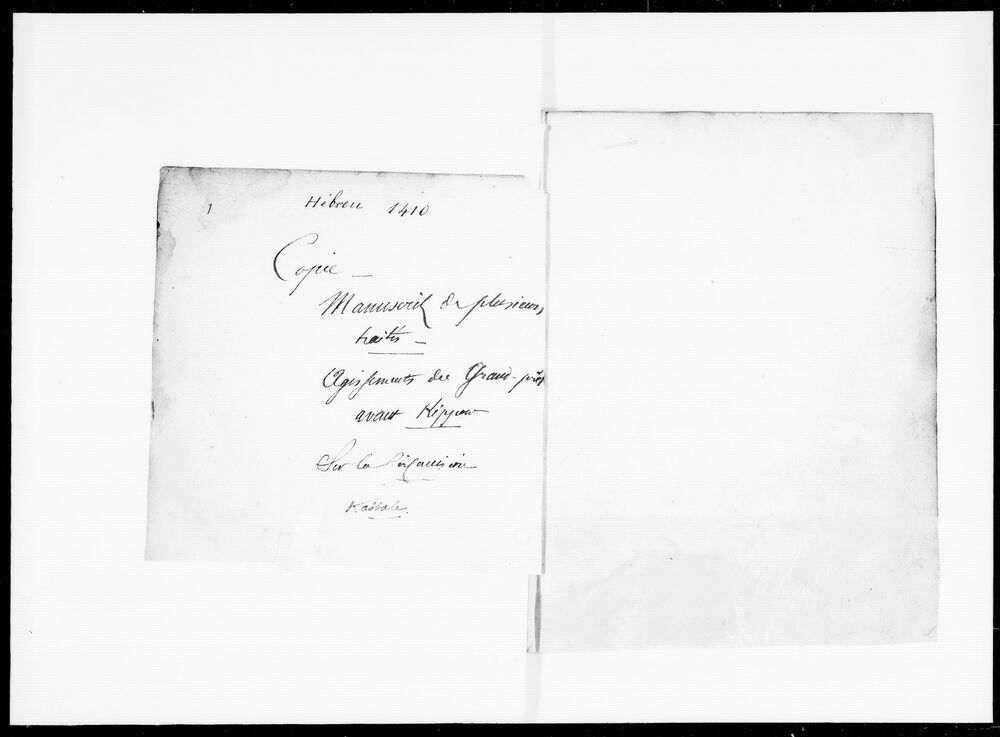 1 Hébreu 1410
Copie —
Manuscrit de plusieurs
traités —
Agissements du Grand-prêt
avant Kippour
Sur la
Kabbale.